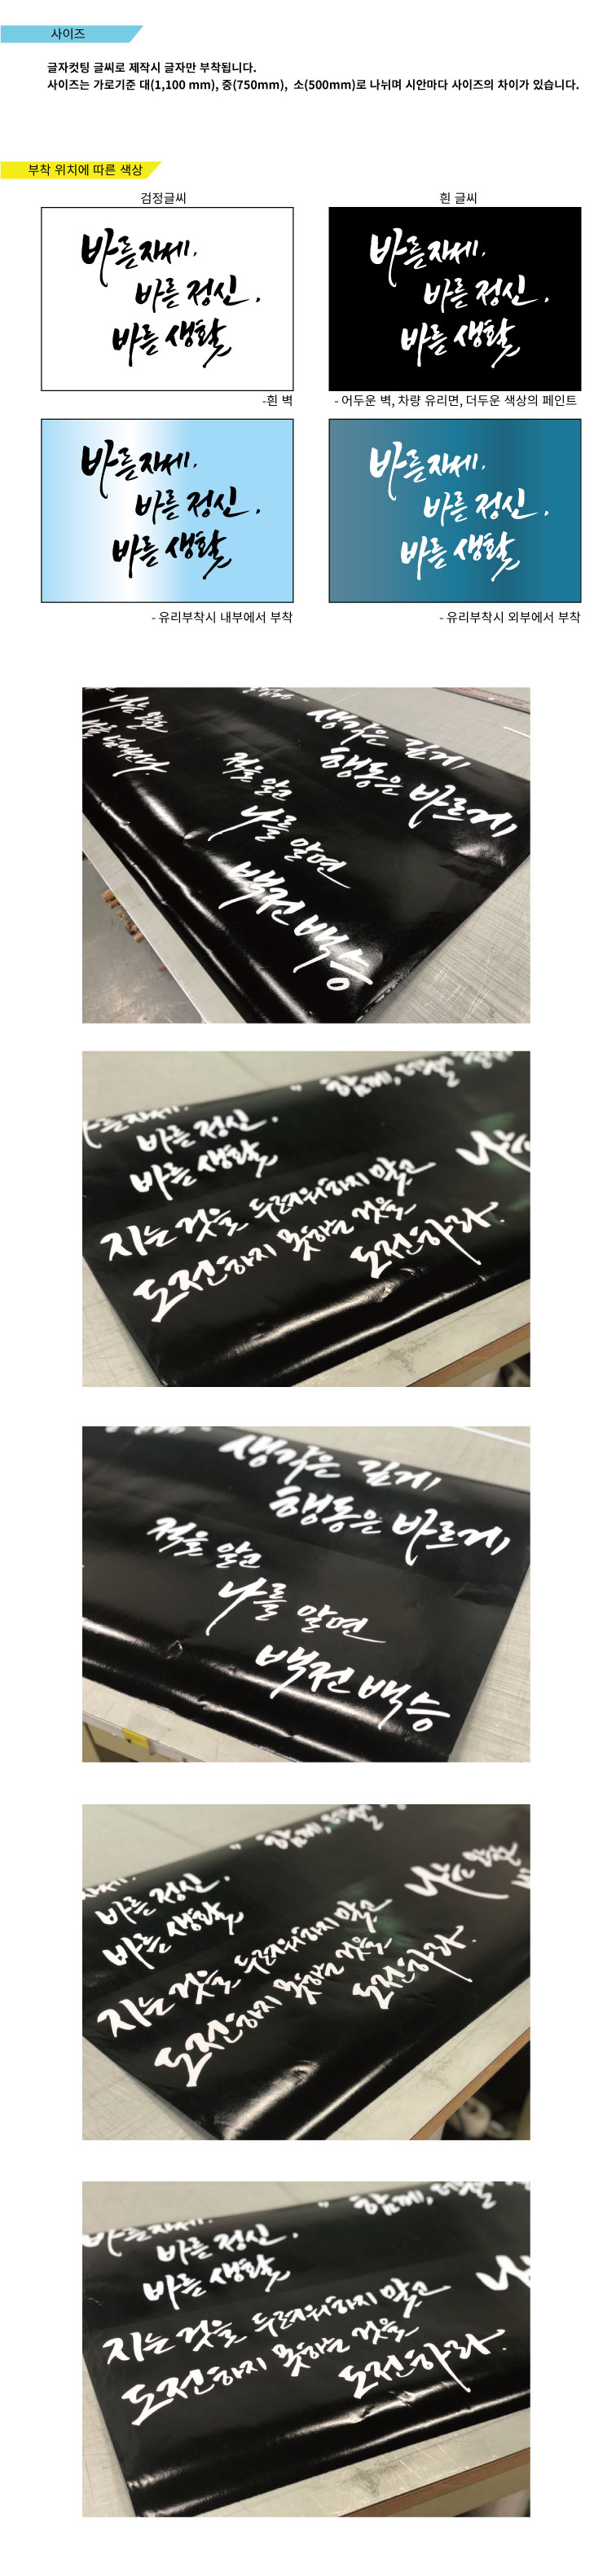 사이즈
글자컷팅 글씨로 제작시 글자만 부착됩니다.
사이즈는 가로기준 대(1,100 mm), 중(750mm), 소(500mm)로 나뉘며 시안마다 사이즈의 차이가 있습니다.
부착 위치에 따른 색상
검정글씨
흰 글씨
바른자세,
바른 정신,
바른 생활
바른자세,
바른 정신,
바른 생활
-흰 벽
- 어두운 벽, 차량 유리면, 더두운 색상의 페인트
바른자세,
바른 정신,
바른 생활
바른자세,
바른 정신,
바른 생활
- 유리부착시 내부에서 부착
- 유리부착시 외부에서 부착
생각은 깊게
행동은 바르게
적을 알고
나를 알면
백전백승
바른자세,
바른 정신,
바른 생활
지는 것을 두려워하지 말고
도전하지 못하는 것을
도전하라.
생각은 깊게
행동은 바르게
적을 알고
나를 알면
백전백승
함께,
바른 정신,
바른 생활
지는 것을 두려워하지 말고
도전하지 못하는 것을
도전하라.
함께,
바른자세,
바른 정신,
바른 생활
지는 것을 두려워하지 말고
도전하지 못하는 것을
도전하라.